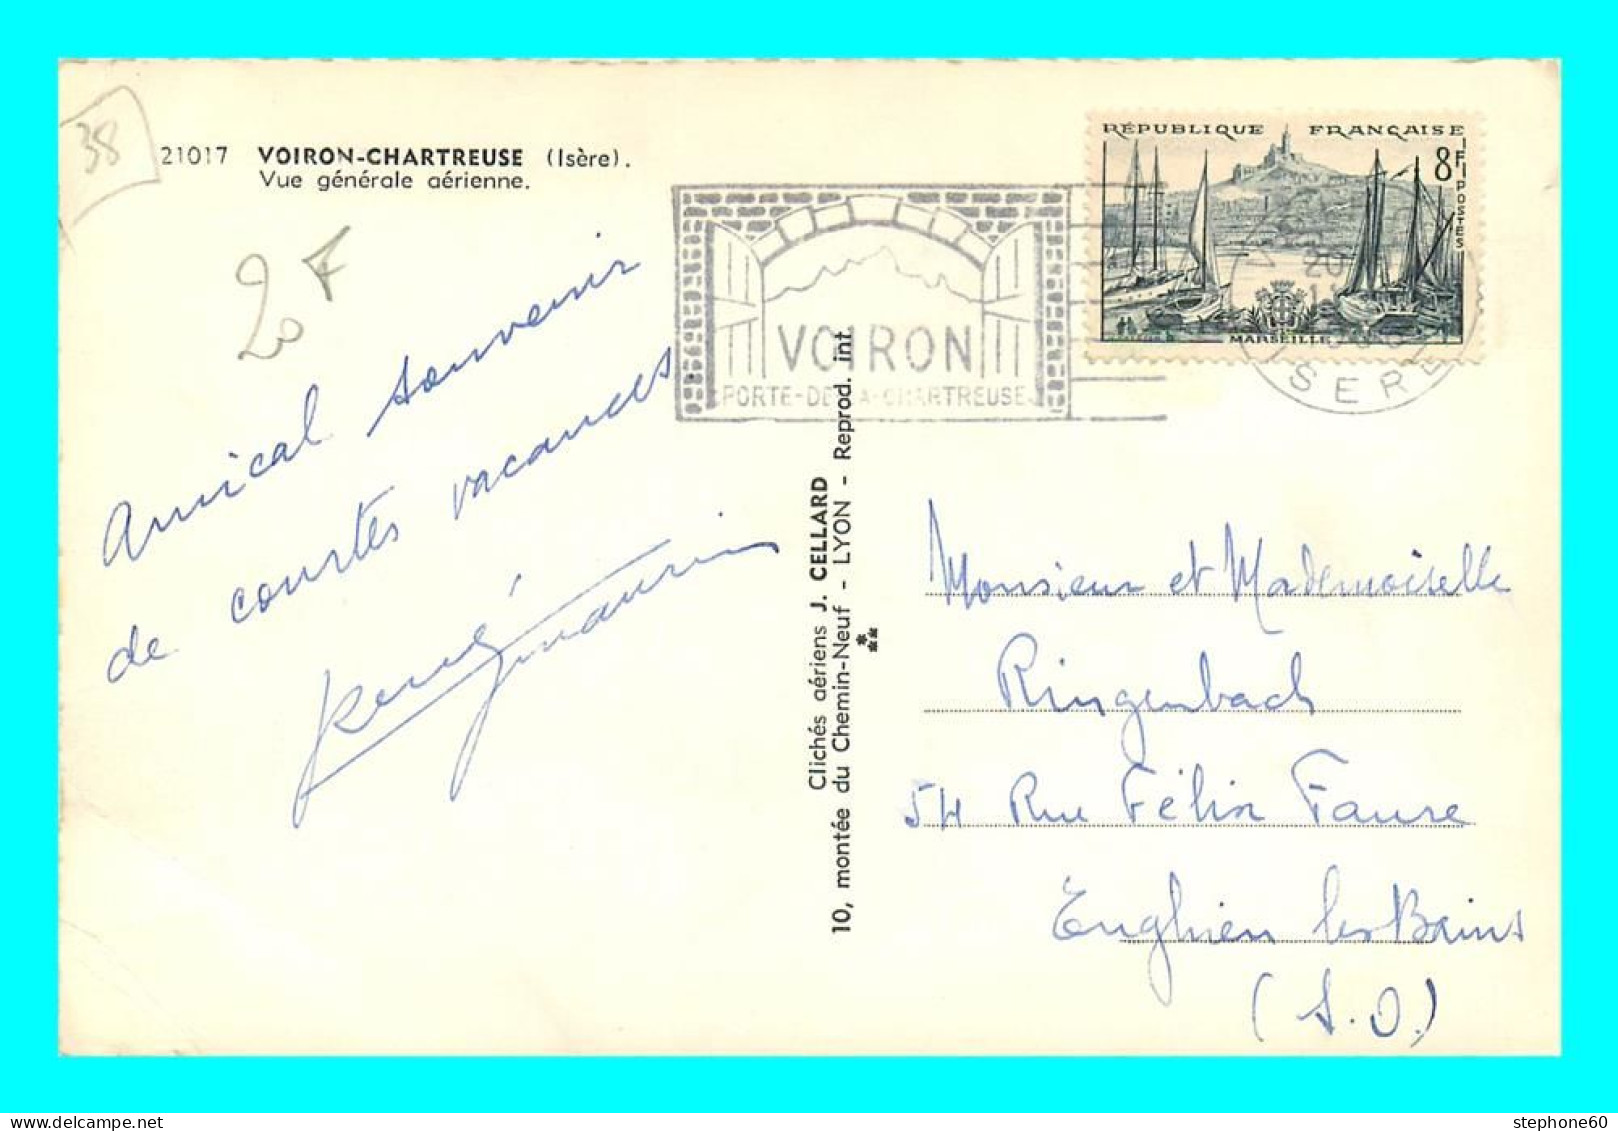 38
21017 VOIRON-CHARTREUSE (Isère).
Vue générale aérienne.
20 F
Amical souvenir
de courtes vacances.
René
VOIRON
PORTE-DE-LA-CHARTREUSE
RÉPUBLIQUE FRANÇAISE
8F
POSTES
MARSEILLE
20
Clichés aériens J. CELLARD
10, montée du Chemin-Neuf - LYON - Reprod. int
Monsieur et Mademoiselle
Ringenbach
54 Rue Félix Faure
Enghien les Bains
(S.O.)
stephone60